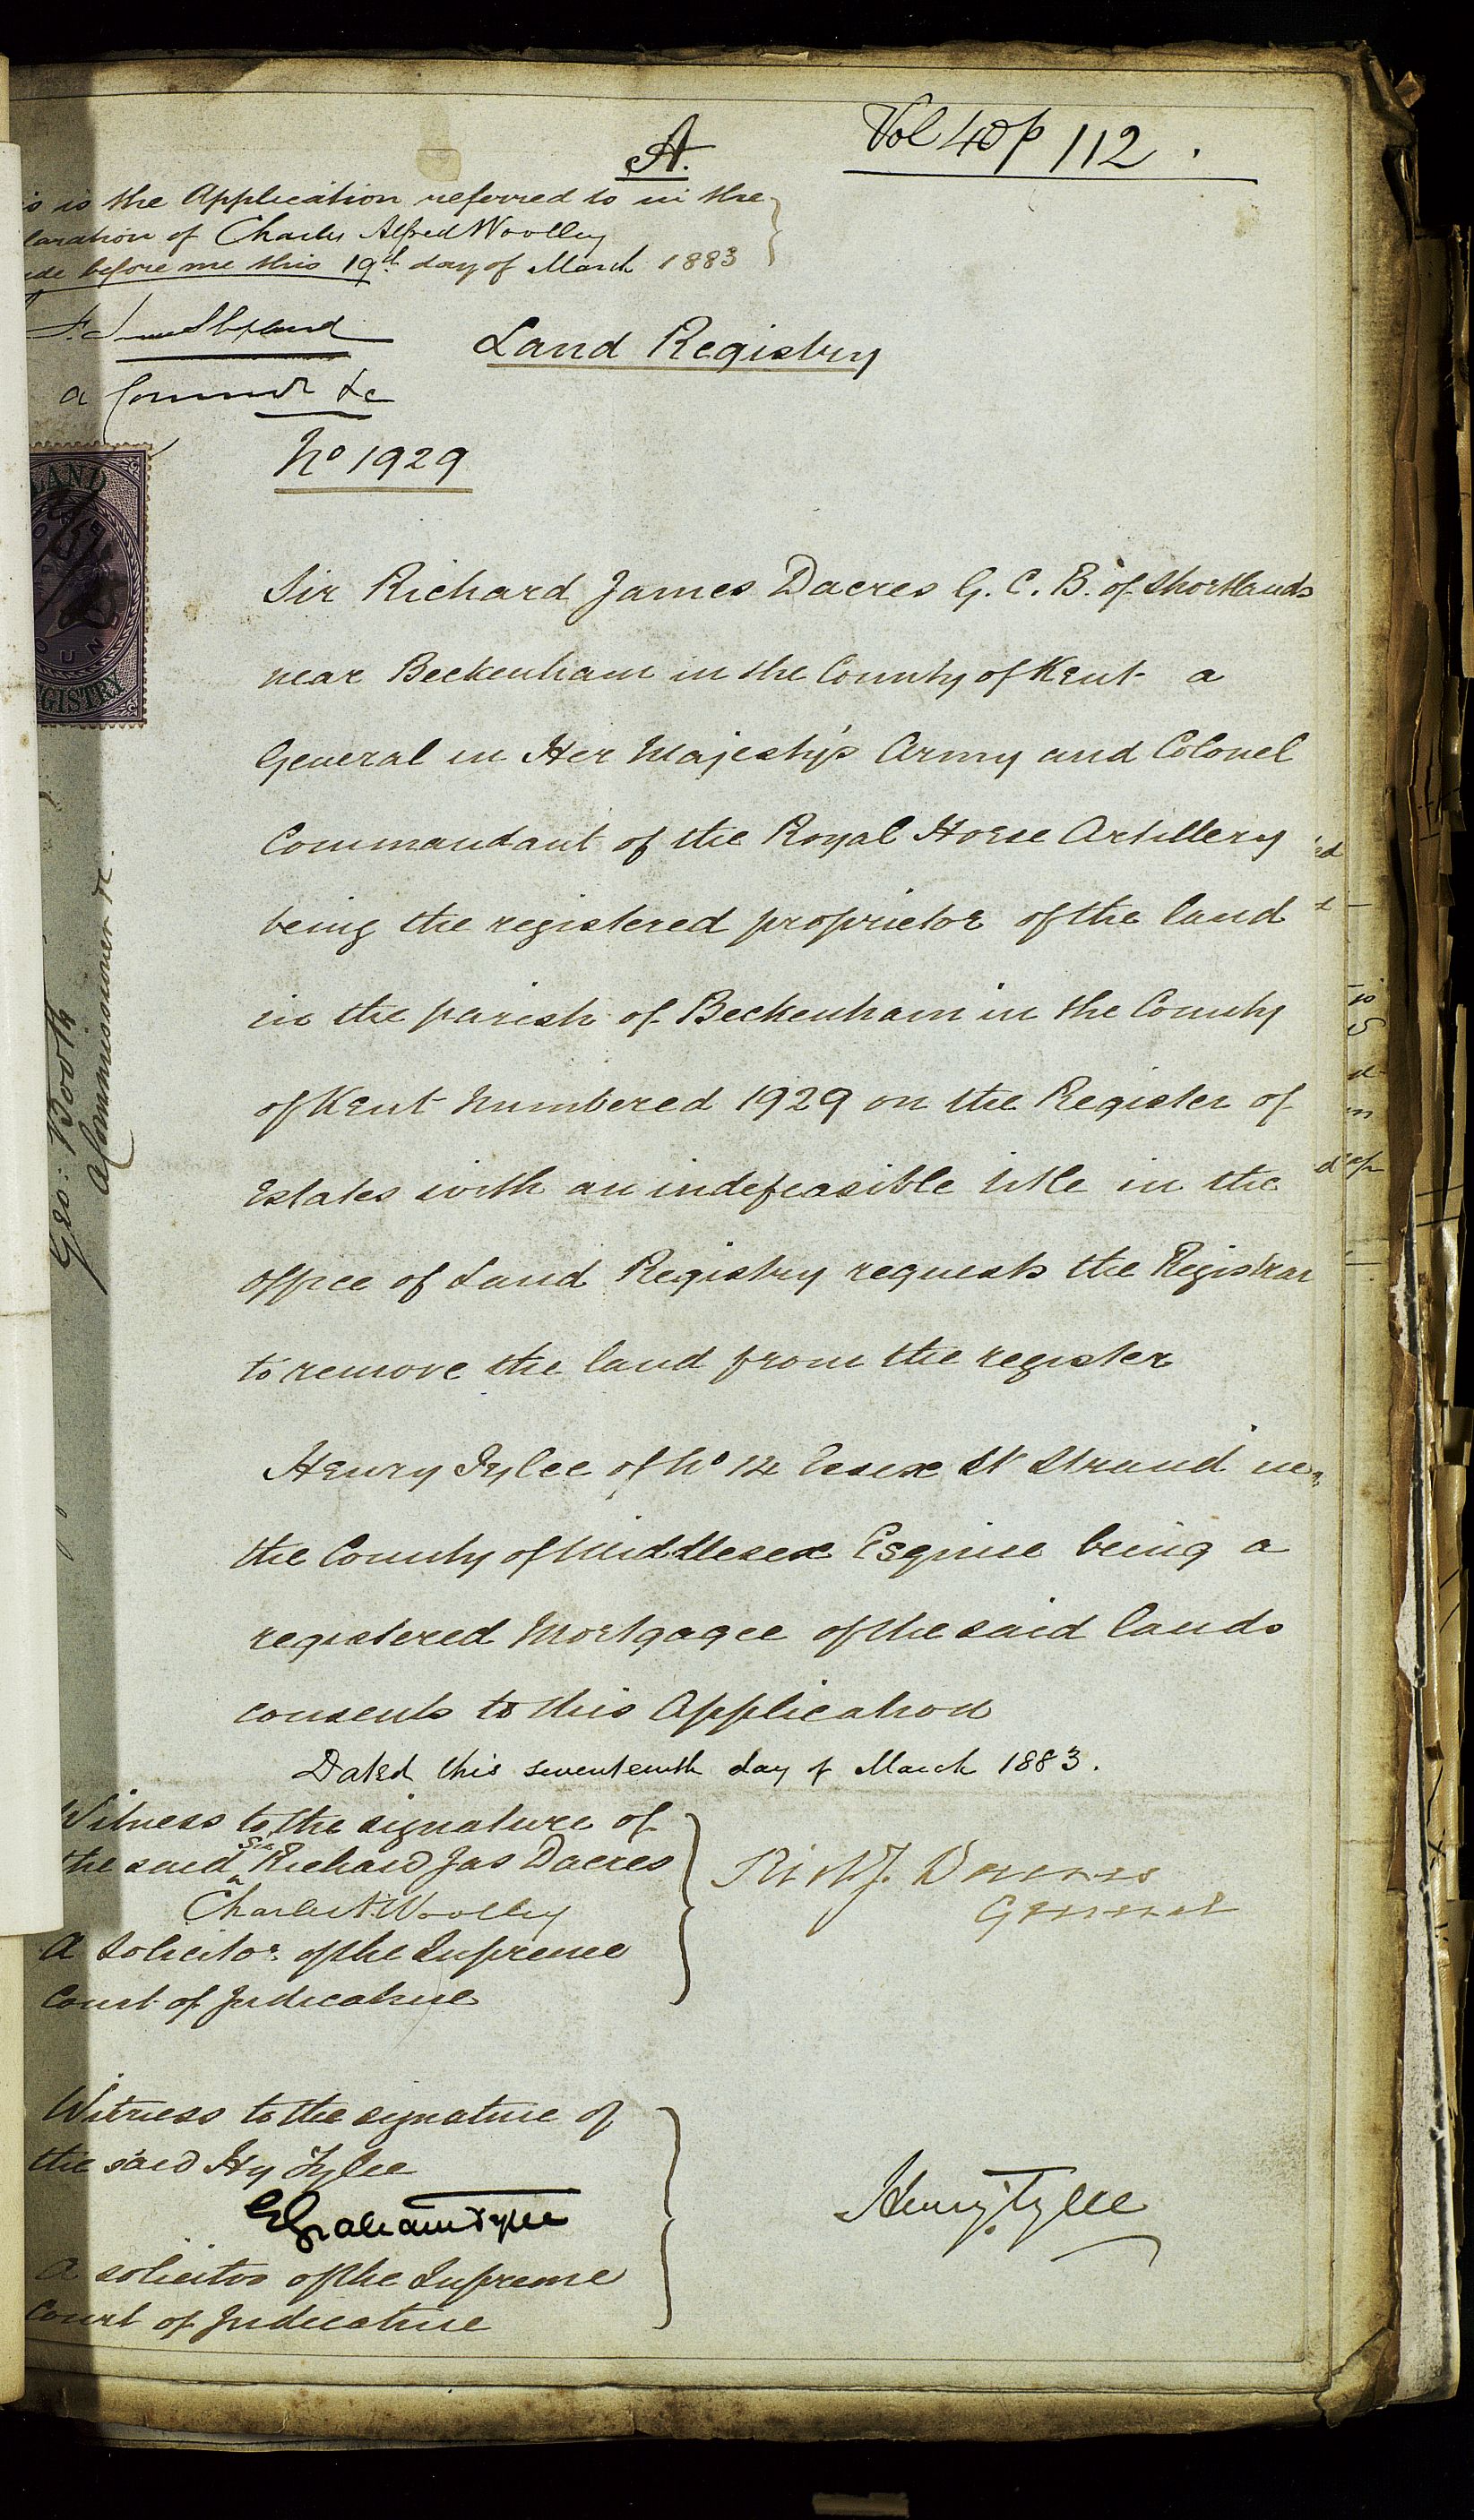 A.
Vol 40 p 112.
is is the Application referred to in the
laration of Charles Alfred Woolley
ade before me this 19th day of March 1883
a Commr &c
Land Registry
No 1929
LAND
REGISTRY
Sir Richard James Dacres G. C. B. of Shortlands
near Beckenham in the County of Kent a
General in Her Majesty's Army and Colonel
Commandant of the Royal Horse Artillery
being the registered proprietor of the land
in the parish of Beckenham in the County
of Kent numbered 1929 on the Register of
Estates with an indefeasible title in the
office of Land Registry requests the Registrar
to remove the land from the register
Henry Tylee of No 14 Essex St Strand in
the County of Middlesex Esquire being a
registered Mortgagee of the said lands
consents to this Application
Dated this seventeenth day of March 1883.
Witness to the signature of
the said Sir Richard Jas Dacres
Charles A. Woolley
A Solicitor of the Supreme
Court of Judicature
Rich. J. Dacres
General
Witness to the signature of
the said Hy Tylee
E Graham Tylee
A solicitor of the Supreme
Court of Judicature
Henry Tylee
Geo: Booth
A Commissioner &c.